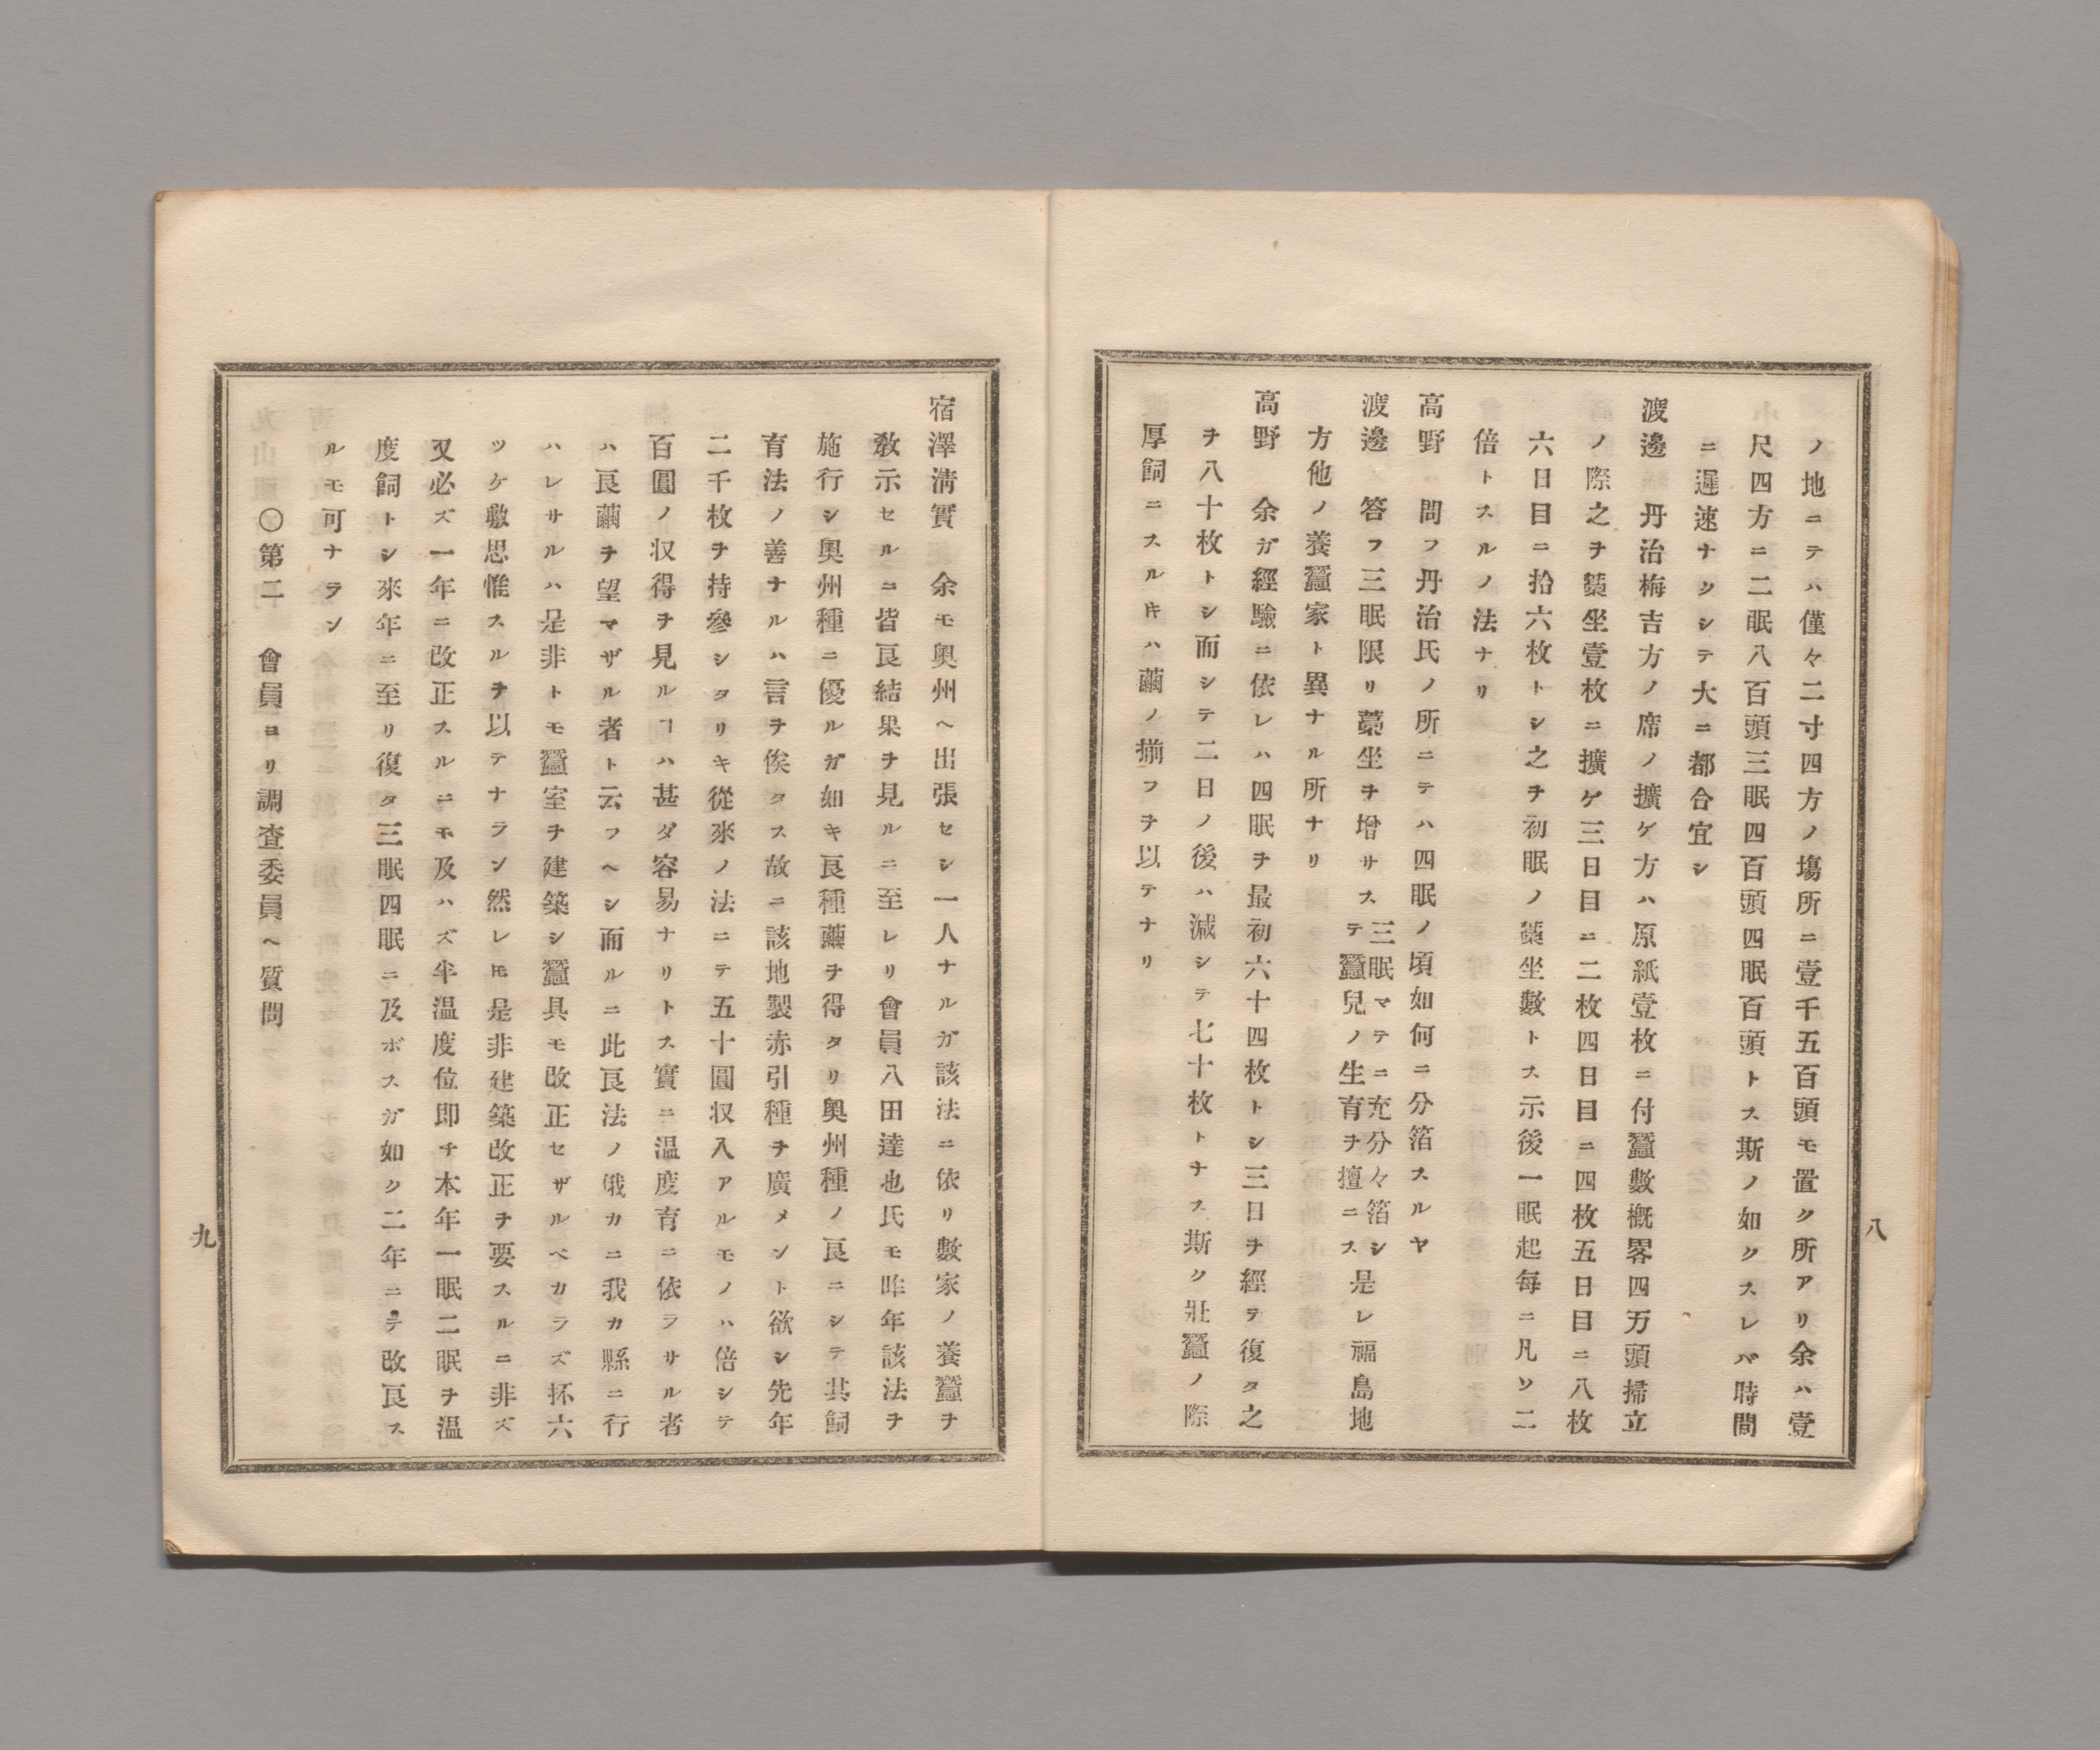 ノ地ニテハ僅々二寸四方ノ塲所ニ壹千五百頭モ置ク所アリ余ハ壹
尺四方ニ二眠八百頭三眠四百頭四眠百頭トス斯ノ如クスレバ時間
ニ遲速ナクシテ大ニ都合宜シ
渡邊　丹治梅吉方ノ席ノ擴ゲ方ハ原紙壹枚ニ付蠶數槪畧四万頭掃立
ノ際之ヲ藁坐壹枚ニ擴ゲ三日目ニ二枚四日目ニ四枚五日目ニ八枚
六日目ニ拾六枚トシ之ヲ初眠ノ藁坐數トス示後一眠起每ニ凡ソ二
倍トスルノ法ナリ
高野　問フ丹治氏ノ所ニテハ四眠ノ頃如何ニ分箔スルヤ
渡邊　答フ三眠限リ藁坐ヲ增サス
三眠マテニ充分々箔シ
テ蠶兒ノ生育ヲ擅ニス
是レ福島地
方他ノ養蠶家ト異ナル所ナリ
高野　余ガ經驗ニ依レハ四眠ヲ最初六十四枚トシ三日ヲ經テ復タ之
ヲ八十枚トシ而シテ二日ノ後ハ減シテ七十枚トナス斯ク壯蠶ノ際
厚飼ニスルキハ繭ノ揃フヲ以テナリ
八
宿澤淸實　余モ奧州ヘ出張セシ一人ナルガ該法ニ依リ數家ノ養蠶ヲ
敎示セルニ皆良結果ヲ見ルニ至レリ會員八田達也氏モ昨年該法ヲ
施行シ奧州種ニ優ルガ如キ良種繭ヲ得タリ奧州種ノ良ニシテ其飼
育法ノ善ナルハ言ヲ俟タス故ニ該地製赤引種ヲ廣メント欲シ先年
二千枚ヲ持參シタリキ從來ノ法ニテ五十圓収入アルモノハ倍シテ
百圓ノ収得ヲ見ルヿハ甚ダ容易ナリトス實ニ溫度育ニ依ラサル者
ハ良繭ヲ望マザル者ト云フヘシ而ルニ此良法ノ俄カニ我カ縣ニ行
ハレサルハ是非トモ蠶室ヲ建築シ蠶具モ改正セザルベカラズ抔六
ツケ敷思惟スルヲ以テナラン然レ𪜈是非建築改正ヲ要スルニ非ズ
又必ズ一年ニ改正スルニモ及ハズ半溫度位即チ本年一眠二眠ヲ溫
度飼トシ來年ニ至リ復タ三眠四眠ニ及ボスガ如ク二年ニテ改良ス
ルモ可ナラン
〇第二　會員ヨリ調查委員ヘ質問
九